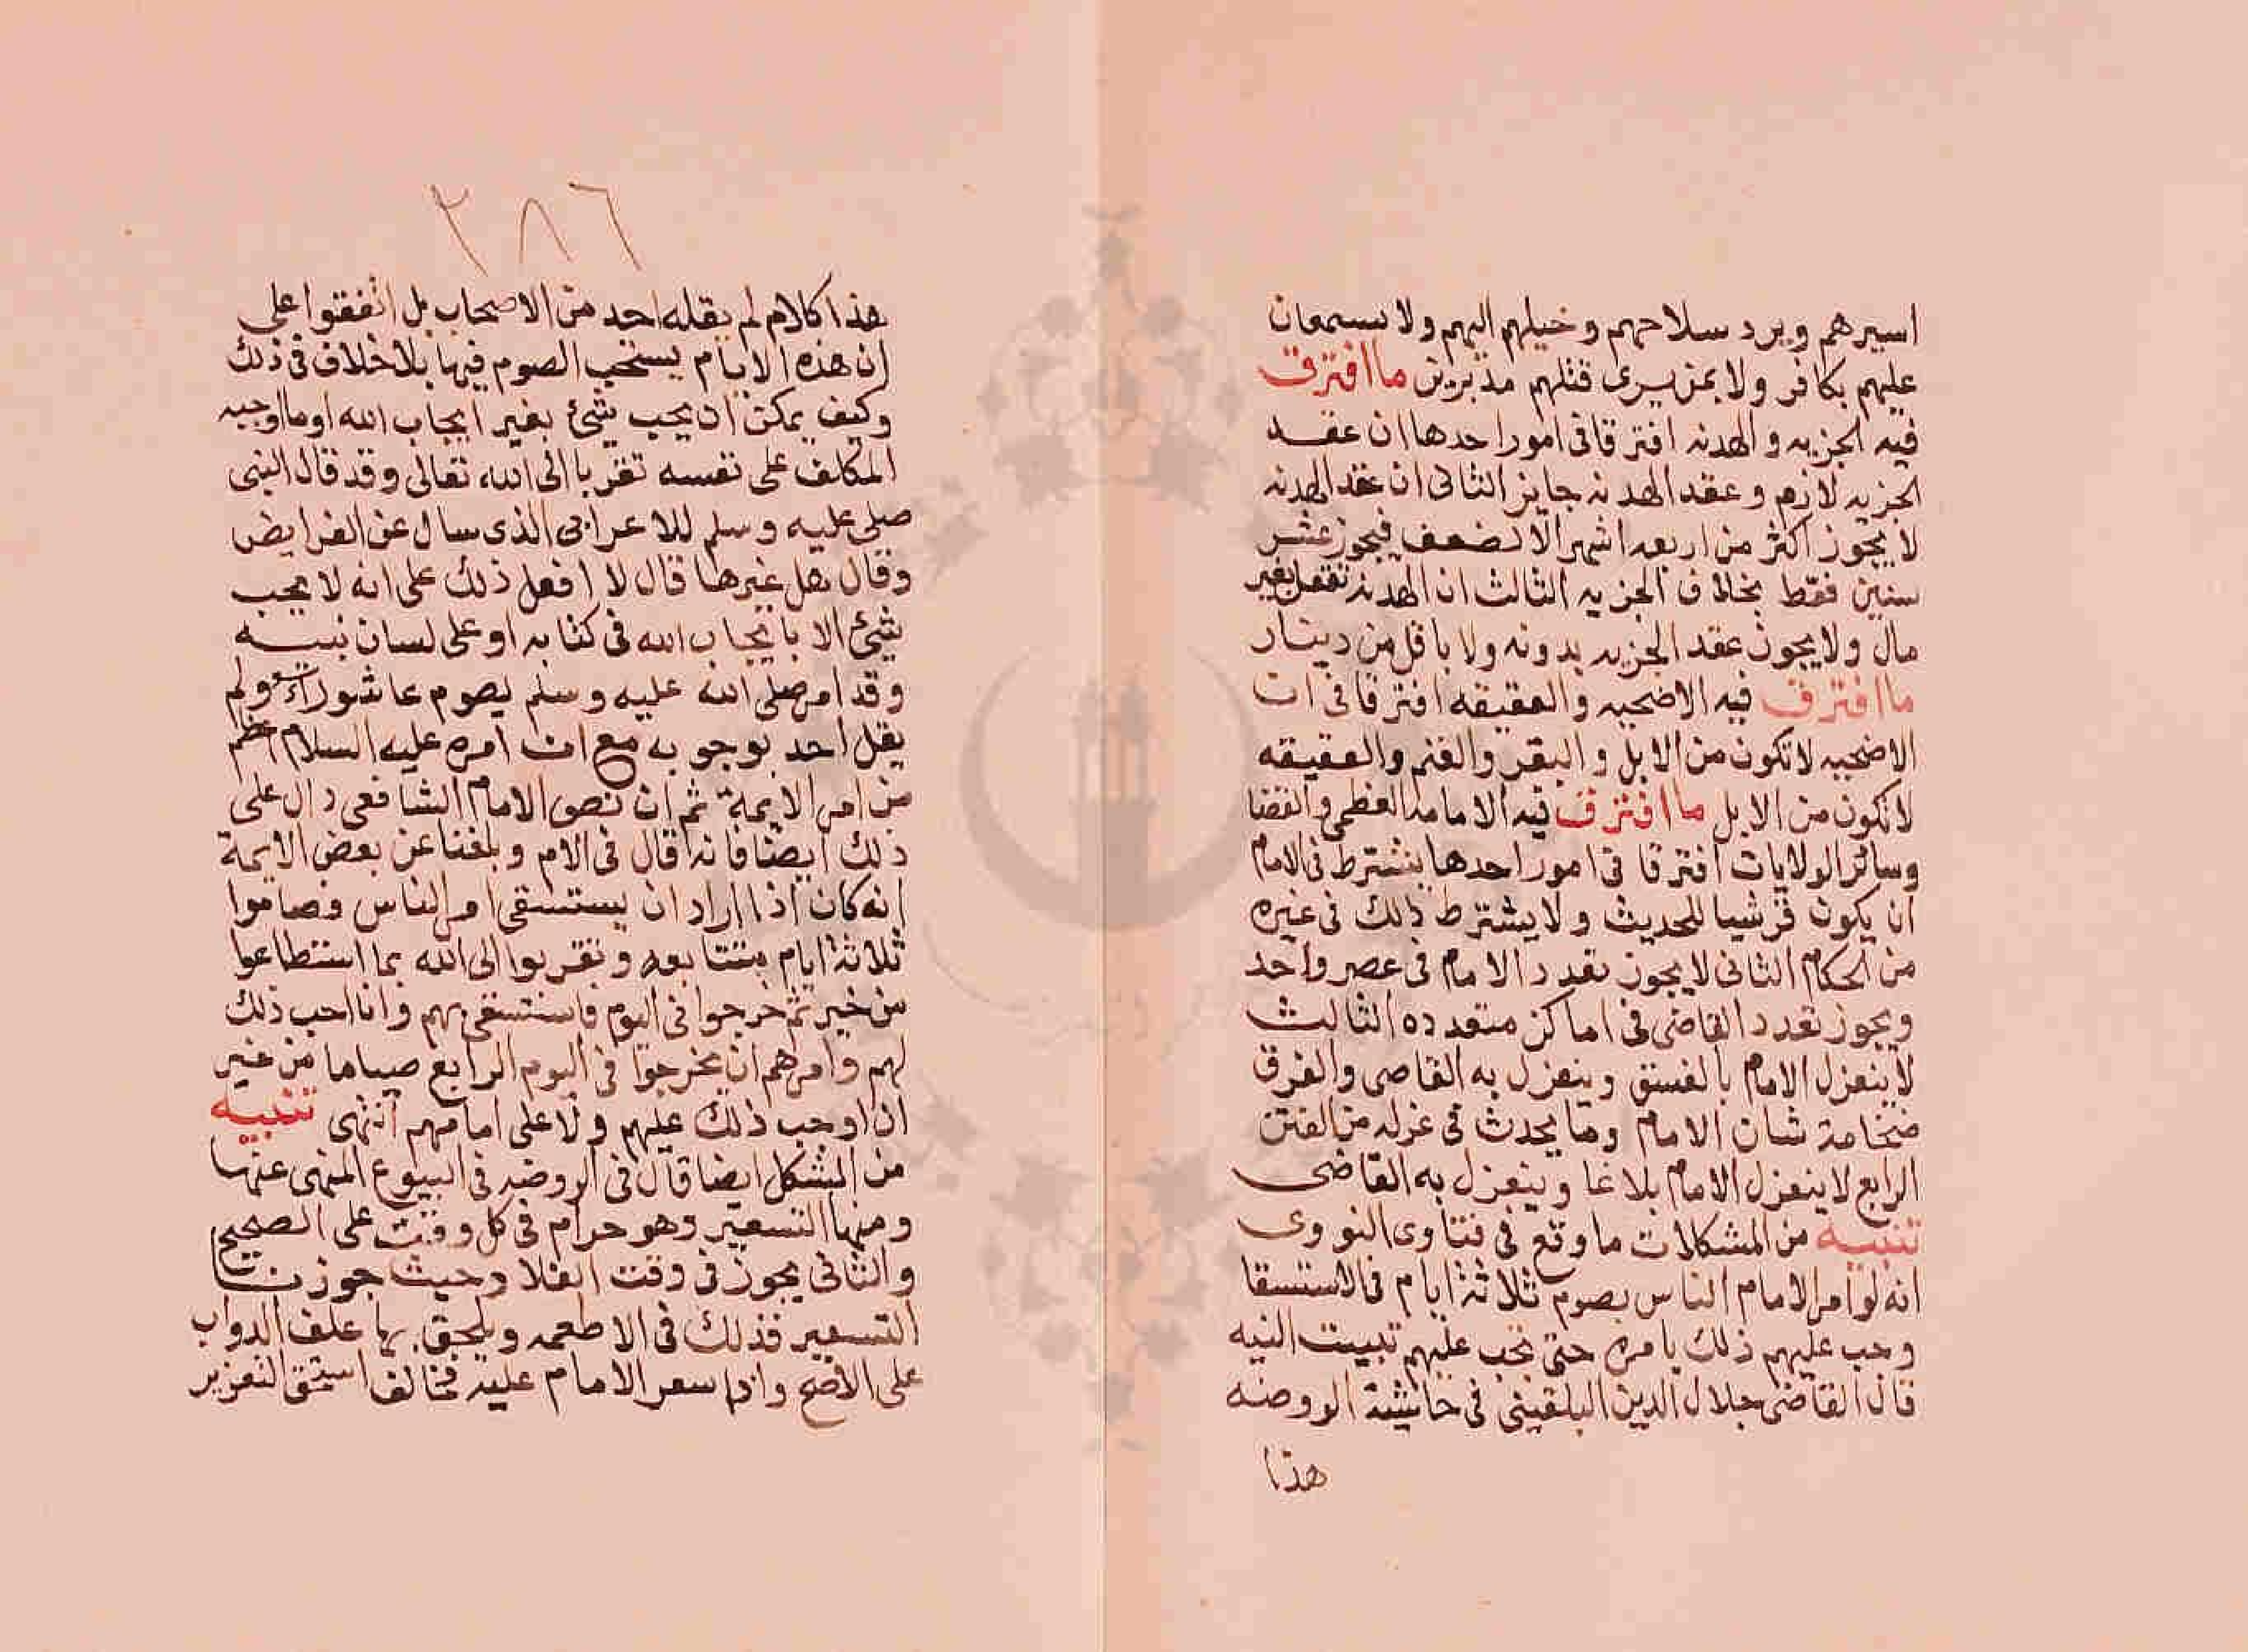 اسيرهم ويرد سلاحهم وخيلهم اليهم ولا يستعان
عليهم بكافر ولا بمن يرى قتلهم مدبرين ما افترق
فيه الجزيه والهدنه افترقا فى امور احدها ان عقد
الجزيه لازم وعقد الهدنه جايز الثانى ان عقد الهدنه
لا يجوز اكثر من اربعه اشهر الا لضعف فيجوز عشر
سنين فقط بخلاف الجزيه الثالث ان الهدنه تعقد بغير
مال ولا يجوز عقد الجزيه بدونه ولا باقل من دينار
ما افترق فيه الاضحيه والعقيقه افترقا فى ان
الاضحيه لا تكون من الابل والبقر والغنم والعقيقه
لا تكون من الابل ما افترق فيه الامامه العظمى والقضا
وسائر الولايات افترقا فى امور احدها يشترط فى الامام
ان يكون قرشيا للحديث ولا يشترط ذلك فى غيره
من الحكام الثانى لا يجوز تعدد الامام فى عصر واحد
ويجوز تعدد القاضى فى اماكن متعدده الثالث
لا ينعزل الامام بالفسق وينعزل به القاضى والفرق
ضخامة شان الامام وما يحدث فى عزله من الفتن
الرابع لا ينعزل الامام بلاغا وينعزل به القاضى
تنبيه من المشكلات ما وقع فى فتاوى النووى
انه لو امر الامام الناس بصوم ثلاثة ايام فى الاستسقا
وجب عليهم ذلك بامره حتى تجب عليهم تبييت النيه
قال القاضى جلال الدين البلقينى فى حاشية الروضه
هذا
٢٨٦
هذا كلام لم يقله احد من الاصحاب بل اتفقوا على
ان هذه الايام يستحب الصوم فيها بلا خلاف فى ذلك
وكيف يمكن ان يجب شئ بغير ايجاب الله او ما اوجبه
المكلف على نفسه تقربا الى الله تعالى وقد قال النبى
صلى عليه وسلم للاعرابى الذى سال عن الفرايض
وقال هل غيرها قال لا افعل ذلك على انه لا يجب
شئ الا بايجاب الله فى كتابه او على لسان نبيه
وقد امر صلى الله عليه وسلم بصوم عاشوراء ولم
يقل احد بوجوبه مع ان امره عليه السلام اعظم
من امر الايمة ثم ان نص الامام الشافعى دال على
ذلك ايضا فانه قال فى الام وبلغنا عن بعض الايمة
انه كان اذا اراد ان يستسقى امر الناس فصاموا
ثلاثة ايام متتابعه وتقربوا الى الله بما استطاعوا
من خير ثم خرجوا فى اليوم فاستسقى بهم وانا احب ذلك
لهم وامرهم ان يخرجوا فى اليوم الرابع صياما من غير
ان اوجب ذلك عليهم ولا على امامهم انتهى تنبيه
من المشكل ايضا قال فى الروضه فى البيوع المنهى عنها
ومنها التسعير وهو حرام فى كل وقت على الصحيح
والثانى يجوز فى وقت الغلا وحيث جوزنا
التسعير فذلك فى الاطعمه ويلحق بها علف الدواب
على الاصح واذا سعر الامام عليه فخالف استحق التعزير